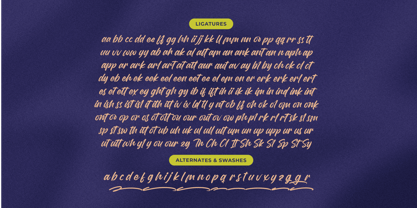 LIGATURES
aa bb cc dd ee ff gg hh ii jj kk ll mm nn oo pp qq rr ss tt
uu vv ww xx yy zz ab ah ak al all am an ank ant an naph ap
app ar ark arl art at att aur aut av ay bl by ch ck cl ct
dy eb eh ek eek eel een eet ee el em en er erk erk erl ert
es et ett ex ey ght gh gy ib if ift ih ii ik ik im in ind ink int
in ish ss ist ist it ith itt iv ix ld tl y nt ob ff oh ok ol om on onk
ont oo op or os ot ott our out ov ow ph pl rk rl rt sk sl sm
sp st sw th tit tt ub uh uk ul ull ult um un up upp ur us ur
ut utt wh yl y ou our zy Th Ch Cl Tt Sh Sk Sl Sp St Sy
ALTERNATES & SWASHES
a b c d e f g h i j k l m n o p q r s t u v x y z g g r